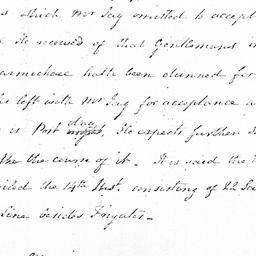 which Mr Jay omitted to accept
he received of that Gentleman's
armichael hath been dunned for
left with Mr Jay for acceptance
is Post day, He expects further
the course of it. It is said the
iled the 14th Inst. consisting of 22
Line besides Frigates-